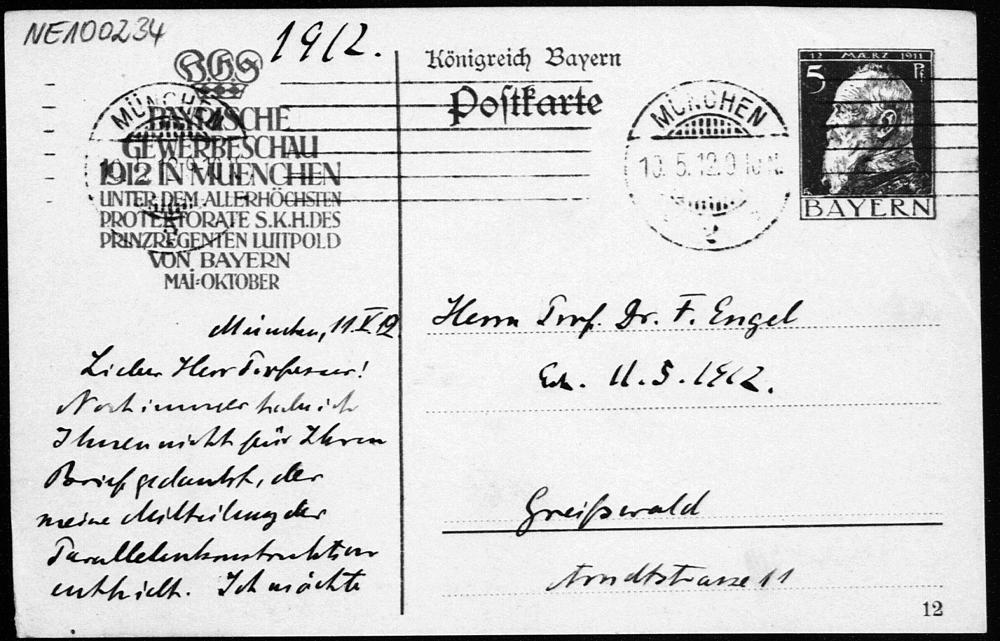 NE100234
1912.
BGS
BAYRISCHE
GEWERBESCHAU
1912 IN MUENCHEN
UNTER DEM ALLERHÖCHSTEN
PROTEKTORATE S.K.H.DES
PRINZREGENTEN LUITPOLD
VON BAYERN
MAI-OKTOBER
MÜNCHEN
Königreich Bayern
Postkarte
MÜNCHEN
10.5.12.9
2
12 MÄRZ 1911
5 Pf
BAYERN
München, 11.V.12.
Lieber Herr Professor!
Noch immer habe ich
Ihnen nicht für Ihren
Brief gedankt, der
meine Mitteilung der
Parallelenkonstruktion
enthielt. Ich möchte
Herrn Prof. Dr. F. Engel
11.5.1912.
Greifswald
Arndtstrasse 11
12